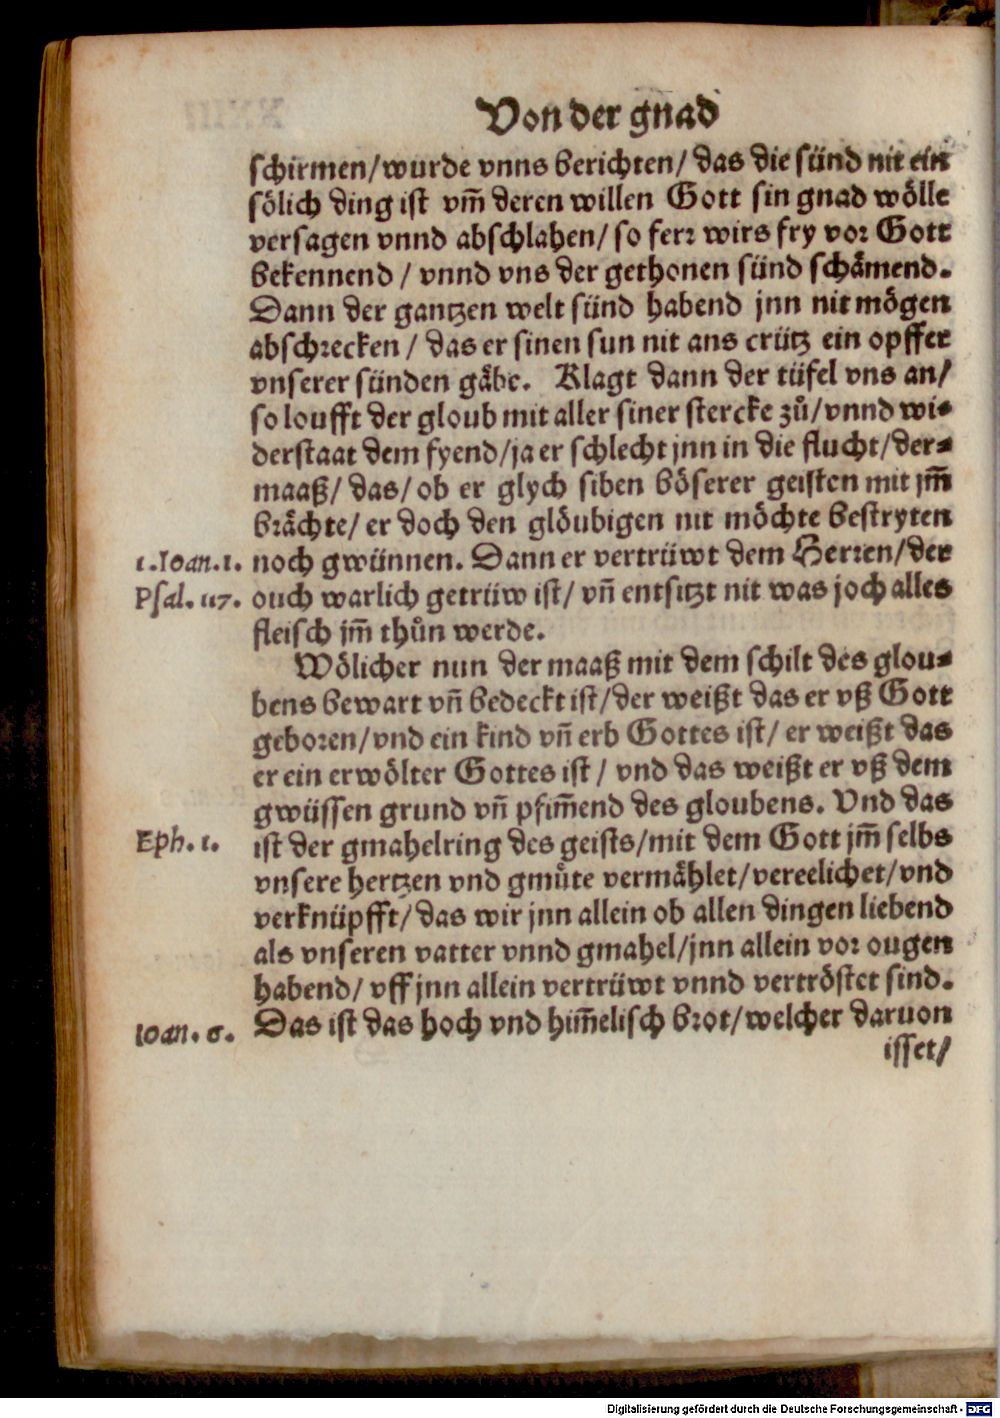 Von der gnad
schirmen/wurde vnns berichten/ das die sünd nit ein
sölich ding ist vm̄ deren willen Gott sin gnad wölle
versagen vnnd abschlahen/ so ferr wirs fry vor Gott
bekennend / vnnd vns der gethonen sünd schämend.
Dann der gantzen welt sünd habend jnn nit mögen
abschrecken / das er sinen sun nit ans crütz ein opffer
vnserer sünden gäbe. Klagt dann der tüfel vns an/
so loufft der gloub mit aller siner stercke zuͦ/vnnd wi-
derstaat dem fyend/ja er schlecht jnn in die flucht/der-
maaß/ das/ ob er glych siben böserer geisten mit jm̄
brächte/ er doch den glöubigen nit möchte bestryten
1.Ioan.1. noch gwünnen. Dann er vertrüwt dem Herren/der
Psal. 117. ouch warlich getrüw ist/ vn̄ entsitzt nit was joch alles
fleisch jm̄ thuͦn werde.
Wölicher nun der maaß mit dem schilt des glou-
bens bewart vn̄ bedeckt ist/der weißt das er vß Gott
geboren/vnd ein kind vn̄ erb Gottes ist/ er weißt das
er ein erwölter Gottes ist / vnd das weißt er vß dem
gwüssen grund vn̄ pfim̄end des gloubens. Vnd das
Eph. 1. ist der gmahelring des geists/mit dem Gott jm̄ selbs
vnsere hertzen vnd gmuͤte vermählet/vereelichet/vnd
verknüpfft/das wir jnn allein ob allen dingen liebend
als vnseren vatter vnnd gmahel/jnn allein vor ougen
habend/ vff jnn allein vertrüwt vnnd vertröstet sind.
Ioan. 6. Das ist das hoch vnd him̄elisch brot/welcher daruon
isset/
Digitalisierung gefördert durch die Deutsche Forschungsgemeinschaft - DFG